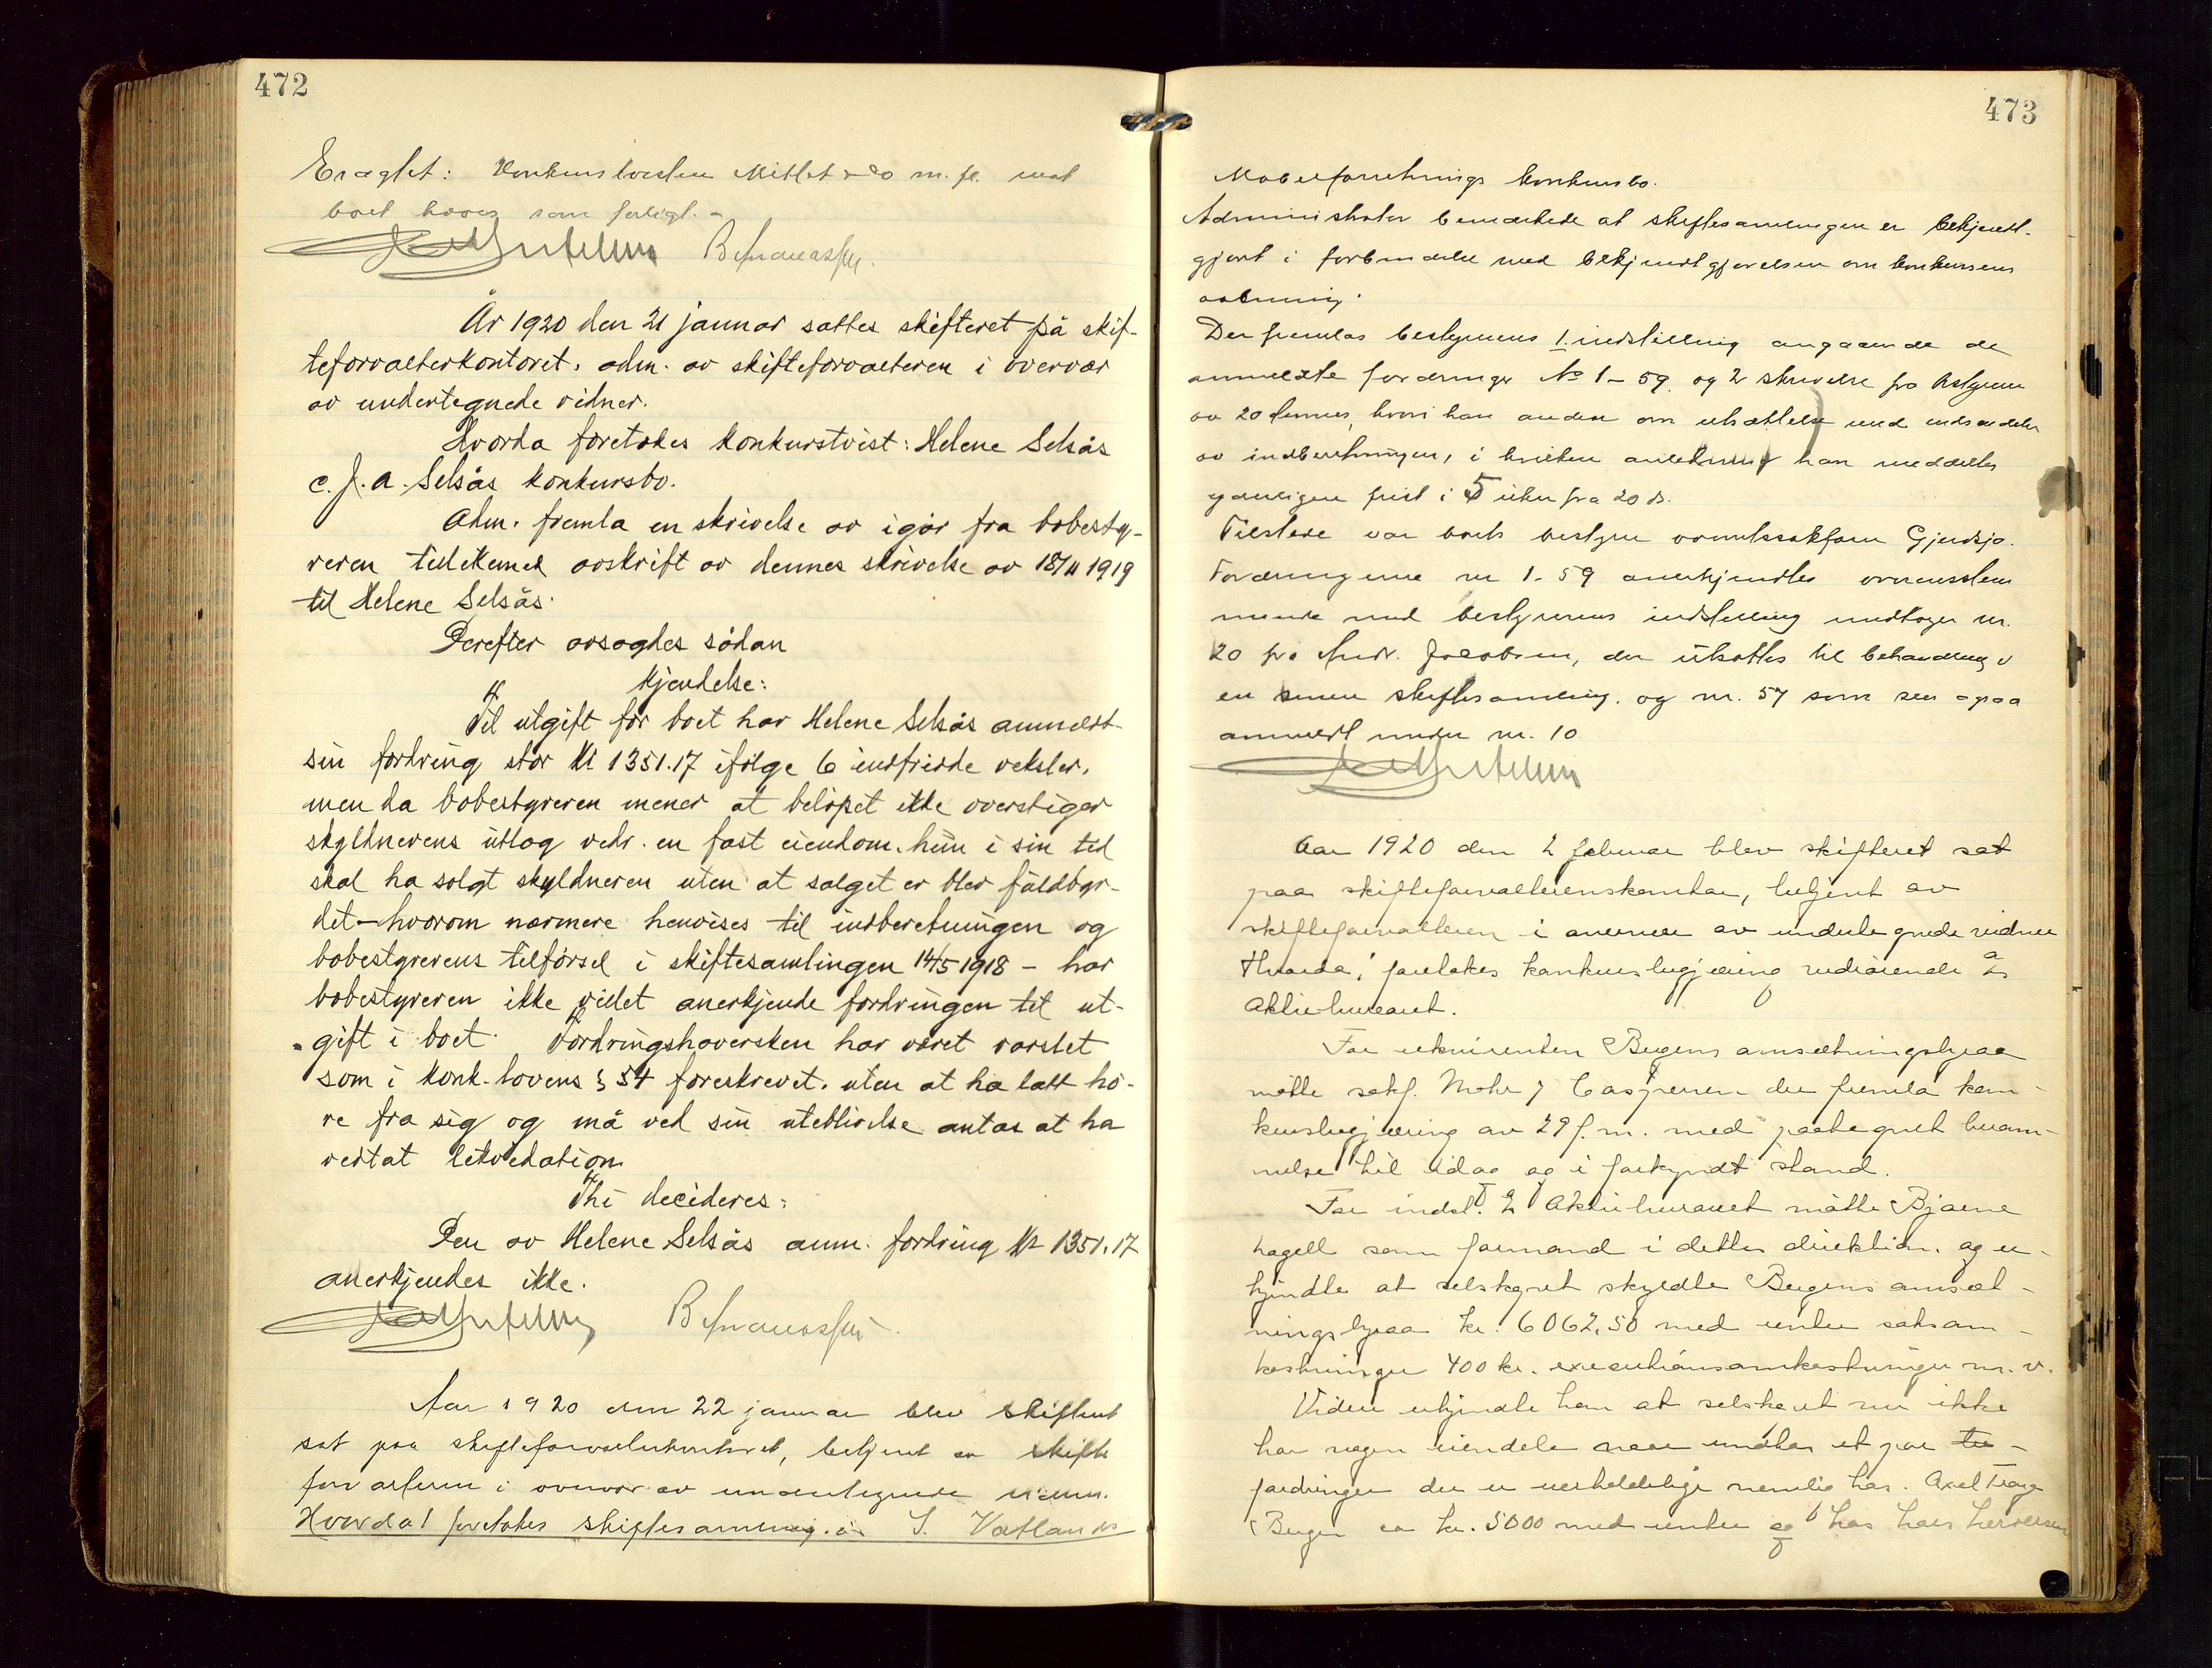 472
Eragtet: Konkurstvisten Mitlet & Co m. fl. mot
boet hæves som forligt. -
År 1920 den 21 januar sattes skifteret på skif-
teforvalterkontoret, adm. av skifteforvalteren i overvær
av undertegnede vidner.
Hvorda foretokes konkurstvist: Helene Selsås
c. J. A. Selsås konkursbo.
Adm. fremla en skrivelse av igår fra bobesty-
reren tillikemed avskrift av dennes skrivelse av 18/11 1919
til Helene Selsås.
Derefter avsagdes sådan
Kjendelse:
Til utgift for boet har Helene Selsås anmeldt
sin fordring stor Kr 1351.17 ifølge 6 indfridde veksler,
men da bobestyreren mener at beløpet ikke overstiger
skyldnerens utlæg vedr. en fast eiendom, hun i sin tid
skal ha solgt skyldneren uten at salget er blev fuldbyr-
det - hvorom nærmere henvises til indberetningen og
bobestyrerens tilførsel i skiftesamlingen 14/5 1918 - har
bobestyreren ikke villet anerkjende fordringen til ut-
gift i boet. Fordringshaversken har været varslet
som i konk.lovens § 54 foreskrevet, uten at ha latt hø-
re fra sig og må ved sin uteblivelse antas at ha
vedtat likvidation
Thi decideres:
Den av Helene Selsås anm. fordring Kr 1351.17
anerkjendes ikke.
Aar 1920 den 22 januar blev skifteret
sat paa skifteforvalterkontoret, betjent av skifte
forvalteren i overvær av undertegnede vidner.
Hvorda! foretokes skiftesamling i S. Vatlands
473
Møbelforretnings konkursbo.
Administrator bemærkede at skiftesamlingen er bekjendt-
gjort i forbindelse med bekjendtgjørelsen om konkursens
aabning.
Der fremlas bestyrerens 1. indstilling angaaende de
anmeldte fordringer No 1-59 og 2 skrivelse fra bestyreren
av 20 dennes, hvori han andrar om utsættelse med indsendelse
av indberetningen, i hvilken anledning han meddeltes
yderligere frist i 5 uker fra 20 ds.
Tilstede var boets bestyrer overretssakfører Gjendsjø.
Fordringerne nr 1-59 anerkjendtes overensstem
mende med bestyrerens indstilling undtagen nr.
20 fra Andr. Jacobsen, der utsattes til behandling i
en senere skiftesamling, og nr. 57 som sees ogsaa
anmeldt under nr. 10
Aar 1920 den 2 februar blev skifteret sat
paa skifteforvalterenskontor, betjent av
skifteforvalteren i overvær av undertegnede vidner
Hvorda! foretokes konkursbegjæring vedrørende A/S
Aktiebureauet.
For rekvirenten Bergens omsætningsbyraa
møtte sakf. Mohr j Caspersen der fremla kon-
kursbegjæring av 29 f. m. med paategnet beram-
melse til idag og i forkyndt stand.
For indst. A/S Aktiebureauet møtte Bjarne
Hagell som formand i dettes direktion, og er-
kjendte at selskapet skyldte Bergens omsæt-
ningsbyraa kr. 6062,50 med renter saksom-
kostninger 400 kr. executionsomkostninger m. v.
Videre erkjendte han at selskapet nu ikke
har nogen eiendele naar undtas et par
fordringer der er uerholdelige nemlig hos. Axel
Bergen ca kr. 5000 med renter og hos